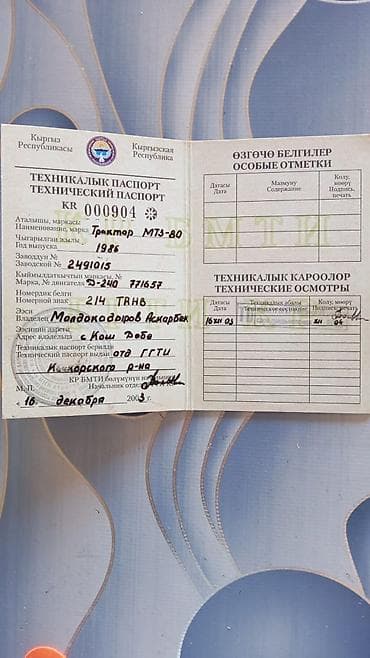 Кыргыз
Республикасы
Кыргызская
Республика
ТЕХНИКАЛЫК ПАСПОРТ
ТЕХНИЧЕСКИЙ ПАСПОРТ
KR 000904
Аталышы, маркасы
Наименование, марка Трактор МТЗ-80
Чыгарылган жылы
Год выпуска 1986
Заводдун №
Заводской № 2491015
Кыймылдаткычтын маркасы, №
Марка, № двигателя Д-240 771657
Номердик белги
Номерной знак 214 TRHB
Ээси
Владелец Молдокадыров Аскарбек
Ээсинин дареги
Адрес владельца с Кош Добо
Техникалык паспорт берилди
Технический паспорт выдан отд ГГТИ
Кочкорского р-на
КР БМТИ бөлүмүнүн
Начальник
М.П.
« 16 декабря 2003
БМТИ
ӨЗГӨЧӨ БЕЛГИЛЕР
ОСОБЫЕ ОТМЕТКИ
Датасы
Дата
Мазмуну
Содержание
Колу,
мөөрү
Подпись,
печать
ТЕХНИКАЛЫК КАРООЛОР
ТЕХНИЧЕСКИЕ ОСМОТРЫ
Датасы
Дата
Техникалык абалы
Техническое состояние
Колу, мөөрү
Подпись,
16 XII 03
XII
04